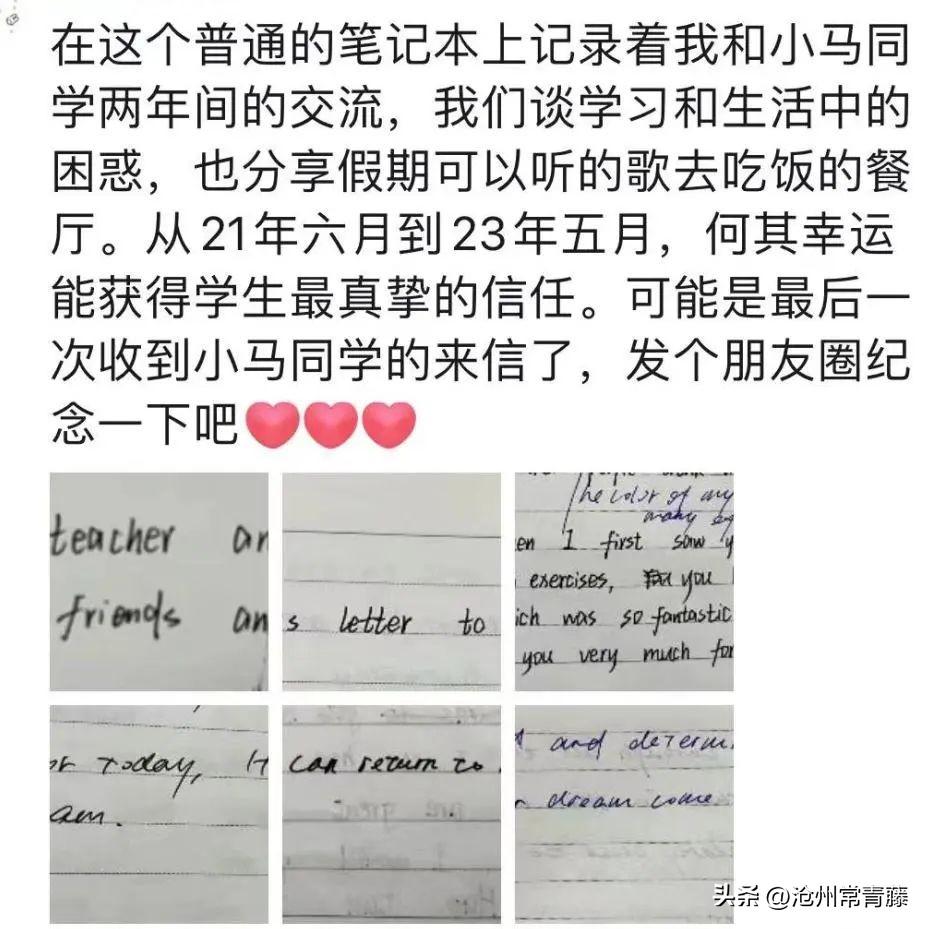 在这个普通的笔记本上记录着我和小马同
学两年间的交流，我们谈学习和生活中的
困惑，也分享假期可以听的歌去吃饭的餐
厅。从21年六月到23年五月，何其幸运
能获得学生最真挚的信任。可能是最后一
次收到小马同学的来信了，发个朋友圈纪
念一下吧❤❤❤
teacher an
friends an
s letter to
the color of my
many
en I first saw y
exercises, you
ich was so fantastic
you very much for
or today, H
am.
can return to
and determ
dream come
头条 @沧州常青藤